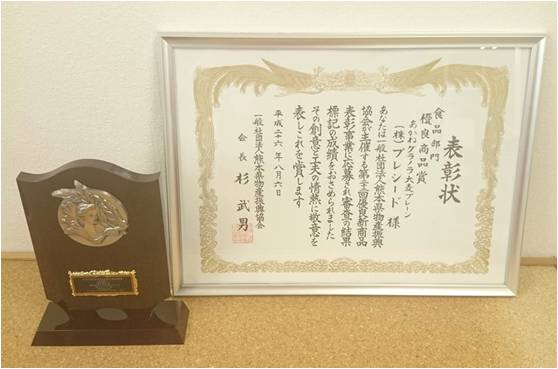 表彰状
食品部門
優良商品賞
あかねグラノラ大麦プレーン
(株)プレシード 様
あなたは一般社団法人熊本県物産振興
協会が主催する第三十回優良新商品
表彰事業に応募され審査の結果
標記の成績をおさめられました
その創意と工夫の情熱に敬意を
表しこれを賞します
平成二十六年八月六日
一般社団法人熊本県物産振興協会
会長 杉 武男